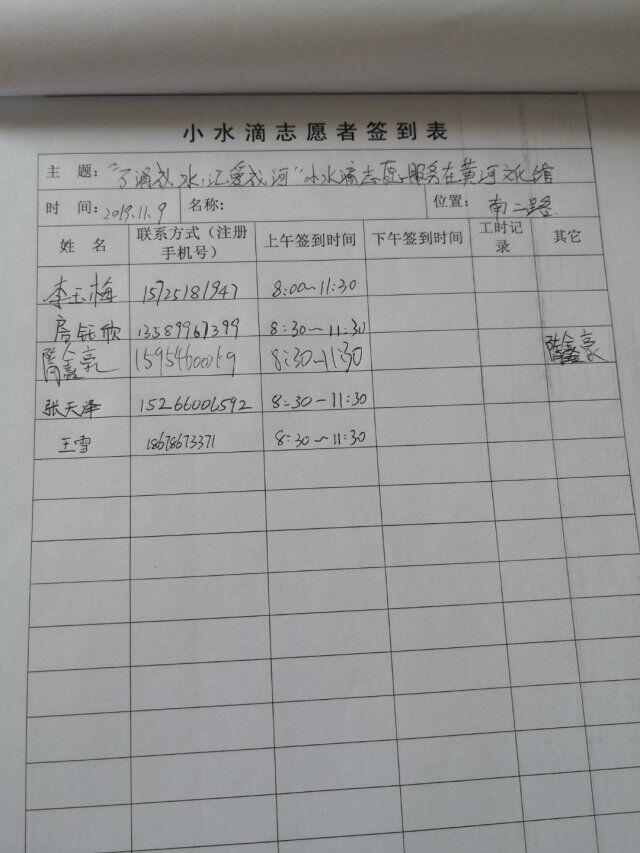 小水滴志愿者签到表
主 题：“万滴成水，汇爱成河”小水滴志愿服务在黄河文化馆
时 间：2019.11.9 名称： 位置：南二路
姓 名 联系方式（注册手机号） 上午签到时间 下午签到时间 工时记录 其它
李玉梅 15725181947 8:00～11:30
房钰欣 13589967399 8:30～11:30
隋鑫豪 8:30～11:30 隋鑫豪
张天泽 15266006592 8:30－11:30
王雪 18678673371 8:30～11:30